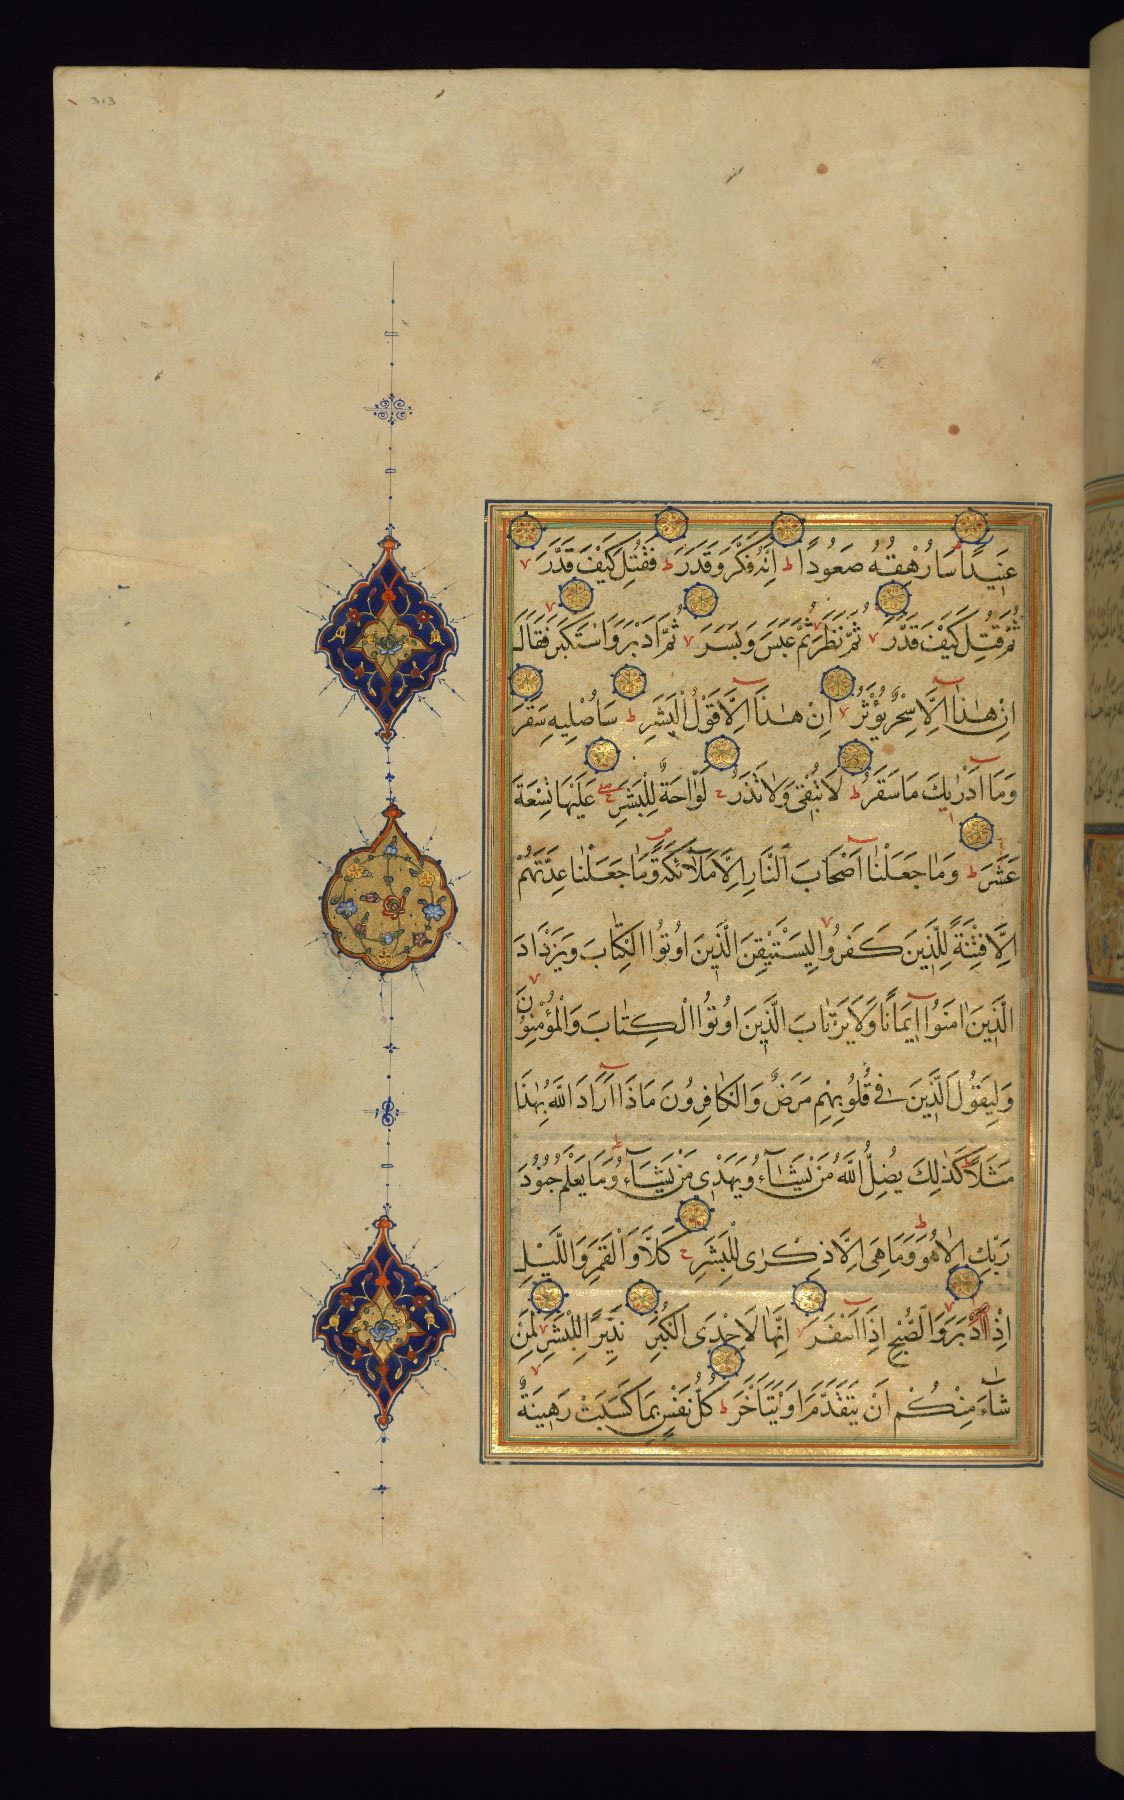 عَنِيدًا سَاُرْهِقُهُ صَعُودًا ط اِنَّهُ فَكَّرَ وَقَدَّرَ ط فَقُتِلَ كَيْفَ قَدَّرَ
ثُمَّ قُتِلَ كَيْفَ قَدَّرَ ثُمَّ نَظَرَ ثُمَّ عَبَسَ وَبَسَرَ ثُمَّ اَدْبَرَ وَاسْتَكْبَرَ فَقَالَ
اِنْ هٰذَا اِلَّا سِحْرٌ يُؤْثَرُ اِنْ هٰذَا اِلَّا قَوْلُ الْبَشَرِ ط سَاُصْلِيهِ سَقَرَ
وَمَا اَدْرٰيكَ مَا سَقَرُ ط لَا تُبْقِي وَلَا تَذَرُ ج لَوَّاحَةٌ لِلْبَشَرِ عَلَيْهَا تِسْعَةَ
عَشَرَ ط وَمَا جَعَلْنَا اَصْحَابَ النَّارِ اِلَّا مَلٰٓائِكَةً وَمَا جَعَلْنَا عِدَّتَهُمْ
اِلَّا فِتْنَةً لِلَّذِينَ كَفَرُوا لِيَسْتَيْقِنَ الَّذِينَ اُوتُوا الْكِتَابَ وَيَزْدَادَ
الَّذِينَ اٰمَنُوا اِيمَانًا وَلَا يَرْتَابَ الَّذِينَ اُوتُوا الْكِتَابَ وَالْمُؤْمِنُونَ
وَلِيَقُولَ الَّذِينَ فِي قُلُوبِهِمْ مَرَضٌ وَالْكَافِرُونَ مَاذَا اَرَادَ اللّٰهُ بِهٰذَا
مَثَلًا كَذٰلِكَ يُضِلُّ اللّٰهُ مَنْ يَشَآءُ وَيَهْدِي مَنْ يَشَآءُ وَمَا يَعْلَمُ جُنُودَ
رَبِّكَ اِلَّا هُوَ وَمَا هِيَ اِلَّا ذِكْرٰى لِلْبَشَرِ ج كَلَّا وَالْقَمَرِ وَاللَّيْلِ
اِذْ اَدْبَرَ وَالصُّبْحِ اِذَا اَسْفَرَ اِنَّهَا لَاِحْدَى الْكُبَرِ نَذِيرًا لِلْبَشَرِ لِمَنْ
شَآءَ مِنْكُمْ اَنْ يَتَقَدَّمَ اَوْ يَتَاَخَّرَ ط كُلُّ نَفْسٍ بِمَا كَسَبَتْ رَهِينَةٌ